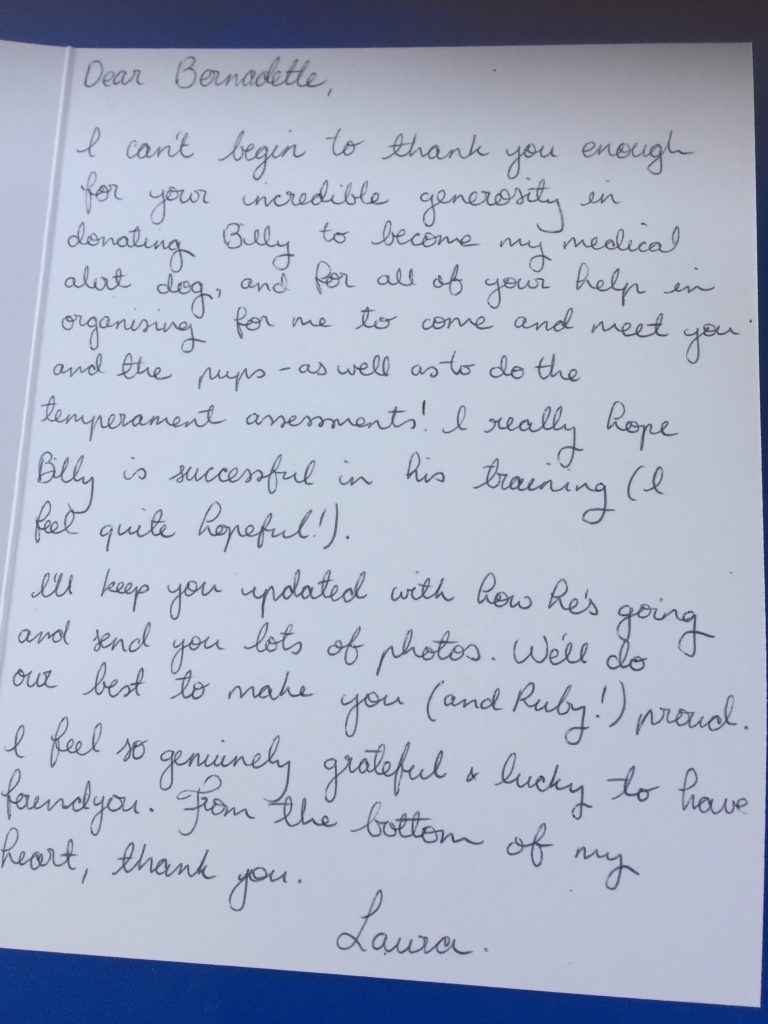 Dear Bernadette,
I can't begin to thank you enough
for your incredible generosity in
donating Billy to become my medical
alert dog, and for all of your help in
organising for me to come and meet you
and the pups - as well as to do the
temperament assessments! I really hope
Billy is successful in his training (I
feel quite hopeful!).
I'll keep you updated with how he's going
and send you lots of photos. We'll do
our best to make you (and Ruby!) proud.
I feel so genuinely grateful & lucky to have
found you. From the bottom of my
heart, thank you.
Laura.